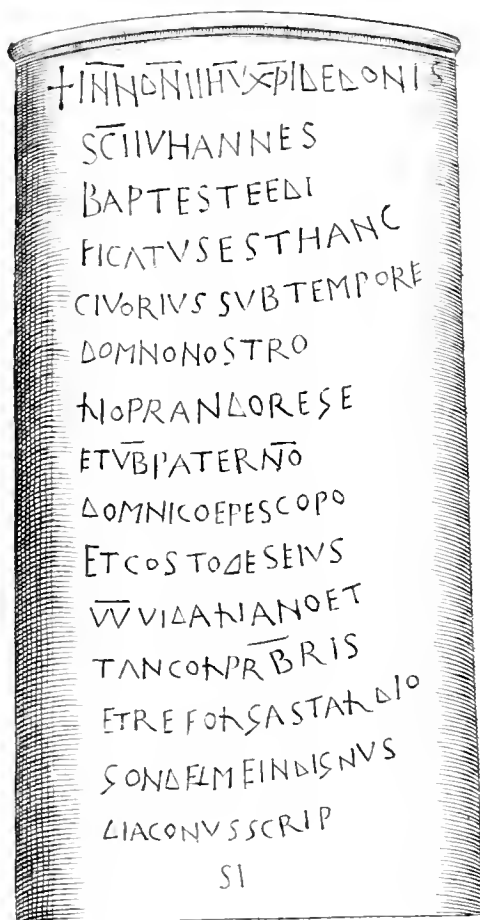 + IN N DNI IHV XPI DE DONIS
SCI IVHANNES
BAPTESTE EDI
FICATVS EST HANC
CIVORIVS SVB TEMPORE
DOMNO NOSTRO
LIOPRANDO REGE
ET VB PATERNO
DOMNICO EPESCOPO
ET COSTODES EIVS
VV VIDALIANO ET
TANCOL PRBRIS
ET REFOL GASTALDIO
GONDELME INDIGNVS
DIACONVS SCRIP
SI